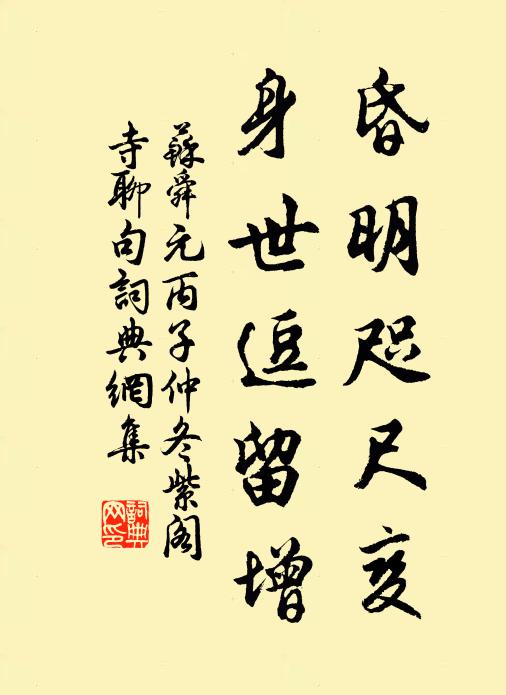 昏明咫尺变
身世逗留增
蘇舜元丙子仲冬紫阁
寺聊句詞典網集
詞典
网印